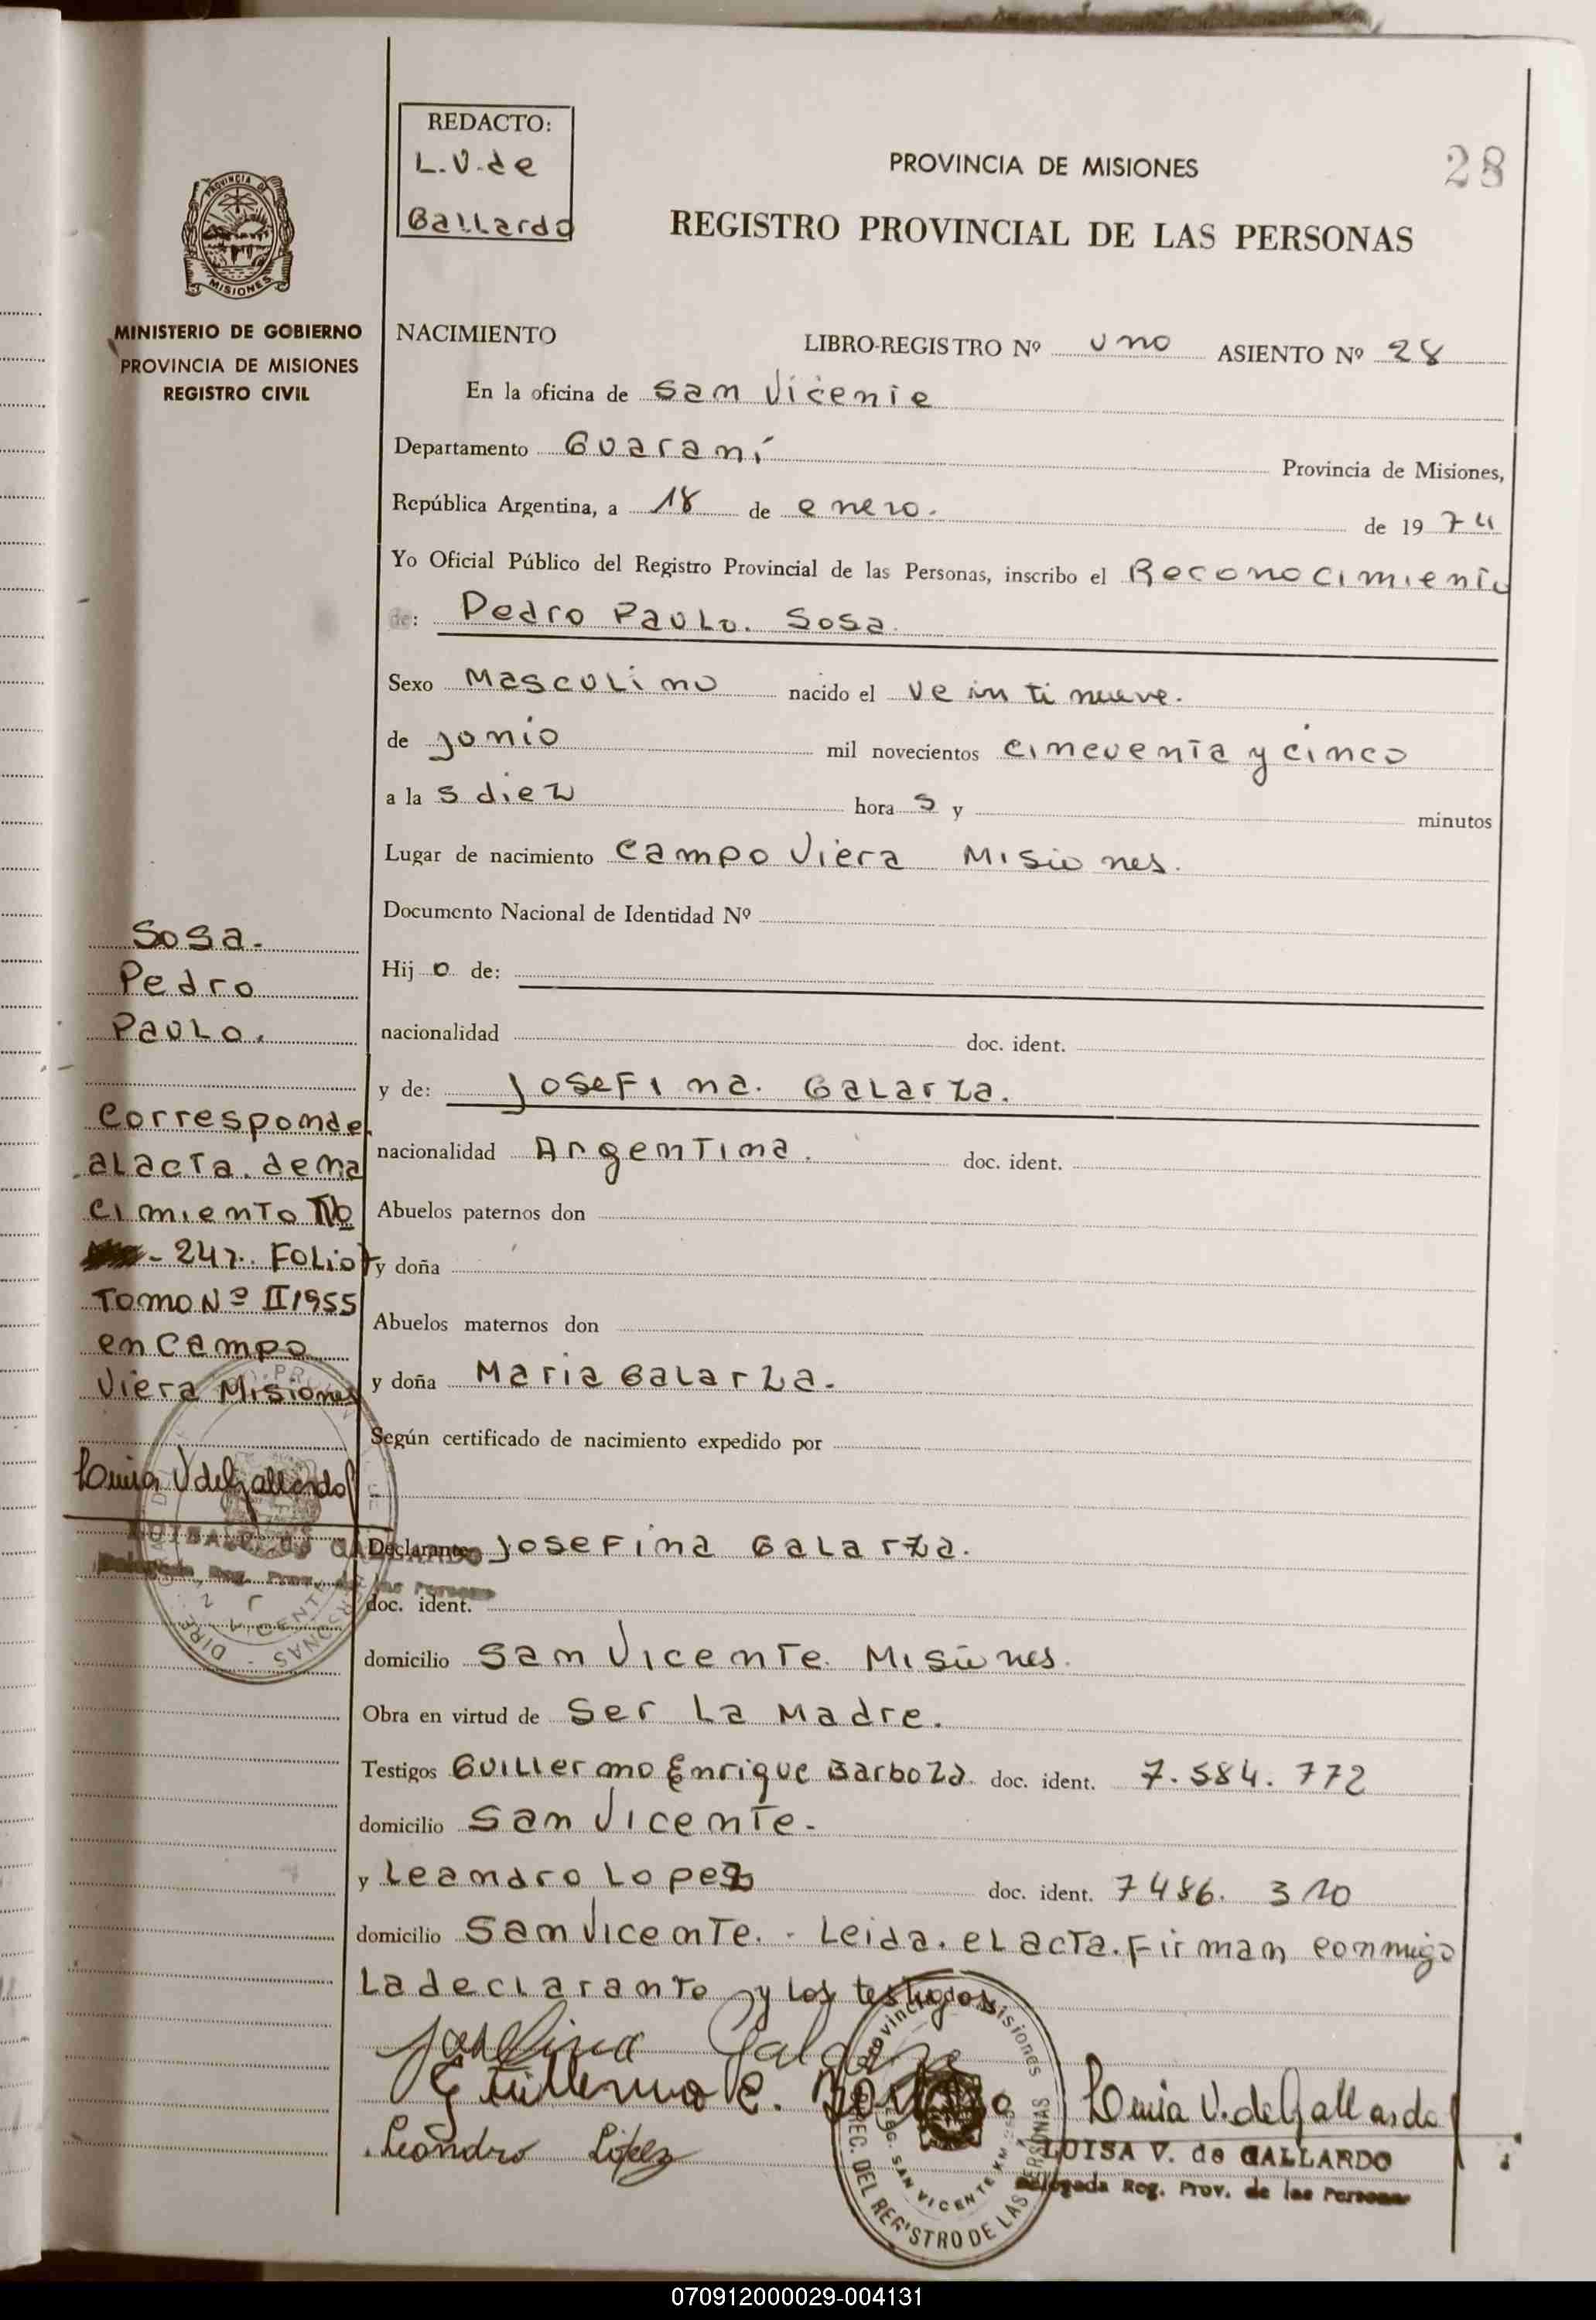 REDACTO:
L.V.de
Gallardo
PROVINCIA DE MISIONES
28
REGISTRO PROVINCIAL DE LAS PERSONAS
PROVINCIA DE
MISIONES
MINISTERIO DE GOBIERNO
PROVINCIA DE MISIONES
REGISTRO CIVIL
NACIMIENTO LIBRO-REGISTRO Nº uno ASIENTO Nº 28
En la oficina de San Vicente
Departamento Guaraní Provincia de Misiones,
República Argentina, a 18 de enero. de 1974
Yo Oficial Público del Registro Provincial de las Personas, inscribo el Reconocimiento
de: Pedro Paulo. Sosa.
Sexo Masculino nacido el veintinueve.
de junio mil novecientos cincuenta y cinco
a la s diez hora s y minutos
Lugar de nacimiento Campo Viera Misiones.
Documento Nacional de Identidad Nº
Hij o de:
nacionalidad doc. ident.
y de: Josefina. Galarza.
nacionalidad Argentina. doc. ident.
Abuelos paternos don
y doña
Abuelos maternos don
y doña Maria Galarza.
Según certificado de nacimiento expedido por
Declarante Josefina Galarza.
doc. ident.
domicilio San Vicente. Misiones.
Obra en virtud de Ser La Madre.
Testigos Guillermo Enrique Barboza. doc. ident. 7.584.772
domicilio San Vicente.
y Leandro Lopez doc. ident. 7486. 310
domicilio San Vicente. - Leida. el acta. Firman conmigo
La declarante y los testigos
Josefina Galarza
Guillermo E. Barboza
Leandro López
Luisa V. de Gallardo
LUISA V. de GALLARDO
Delegada Reg. Prov. de las Personas
Provincia de Misiones
DIREC. DEL REGISTRO DE LAS PERSONAS
DELEG. SAN VICENTE KM
Sosa.
Pedro
Paulo.
Corresponde
al acta. de na
cimiento No
- 247. Folio
Tomo Nº II 1955
en Campo
Viera Misiones
Luisa V de Gallardo
LUISA V. de GALLARDO
Delegada Reg. Prov. de las Personas
070912000029-004131